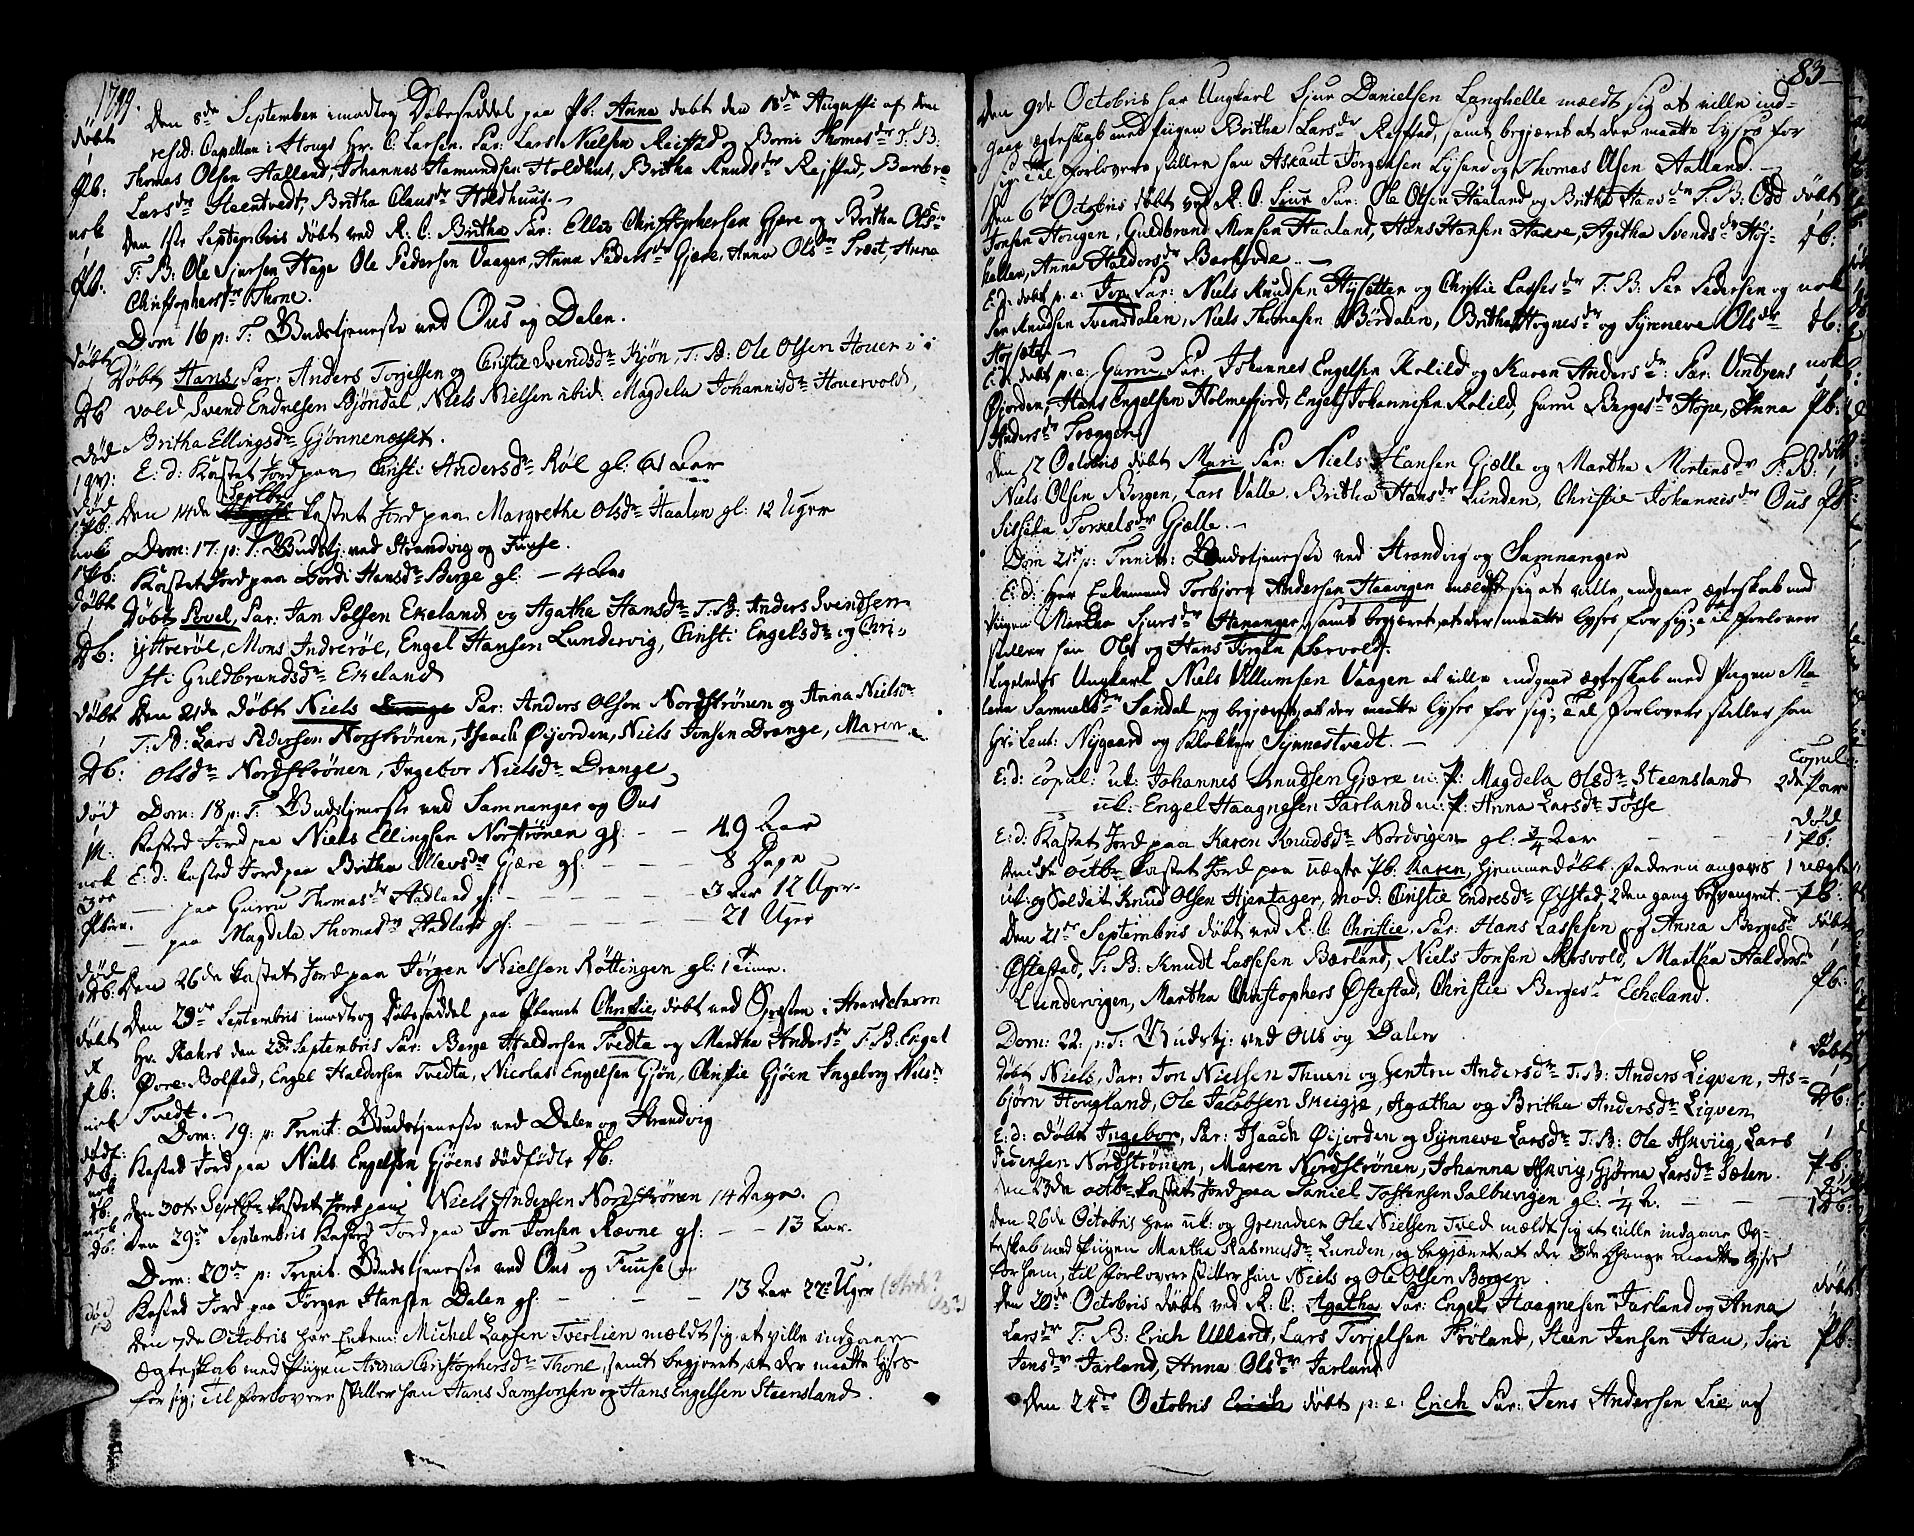 1799.
Den 8de September imodtog Døbeseddel paa Pb: Anna døbt den 18de Augusti af den
døbt
resid: Capellan i Houg Hr. C. Larsen. Par: Lars Nielsen Reistad og Thomasdr T: B:
Pb: Thomas Olsen Aalland, Johannes Aamundsen Holdhuus, Britha Knudsdr Rejstad, Barbra
Larsdr Steentvedt, Britha Clausdr Holdhuus.
nok Den 1ste Septembris døbt ved R: C: Britha Par: Elles Christophersen Gjere og Britha Olsdr
Pb: T: B: Ole Sjursen Hage Ole Pedersen Vaagen, Anna Pedersdr Gjere, Anna Olsdr Træet, Anna
Christophersdr Thone.
Dom 16 p: T: Gudstjeneste ved Ous og Dalen.
døbt
Døbt Hans, Par: Anders Torjelsen og Christie Svendsdr Gjøn, T: B: Ole Olsen Houer-
Db vold, Svend Endresen Bjøndal, Niels Nielsen ibid: Magdela Johannisdr Houervold,
død Britha Ellingsdr Gjønnenesset.
E: d: Kastet Jord paa Christi Andersdr Røl gl: 61 Aar
død Septbr
1 Pb: Den 14de kastet Jord paa Margrethe Olsdr Haaland gl: 12 Uger
nok Dom: 17. p: T. Gudstj: ved Strandvig og Fuuse.
1 Pb: Kastet Jord paa Jordi Hansdr Berge gl: — 4 Aar
døbt Døbt Povel, Par: Jan Polsen Ekeland og Agatha Hansdr T: B: Anders Svendsen
Db: Ytrerøl, Mons Indrerøl, Engel Hansen Lundervig, Christi Engelsdr og Chri-
sti Guldbrandsdr Ekeland
døbt Den 21de døbt Niels Par: Anders Olsen Nordstrønen og Anna Nielsdr
T: B: Lars Pedersen Norstrønen, Isaach Øijorden, Niels Jonsen Drange, Maren
Db: Olsdr Nordstrønen, Ingebor Nielsdr Drange,
død Dom: 18 p: T: Gudstjeneste ved Samnanger og Ous
M: Kasted Jord paa Niels Ellingsen Norstrønen gl: — — 49 Aar
nok E: d: kasted Jord paa Britha Ollevsdr Gjere gl: — — — 8 Dage
— paa Gurru Thomasdr Aadland gl: — — — 3 Aar 12 Uger.
— paa Magdela Thomasdr Aadland gl: — — — 21 Uger
død
1 Db: Den 26de kastet Jord paa Jørgen Nielsen Røttingen gl: 1 Time.
Den 29de Septembris imodtog Døbeseddel paa Pbarnet Christie, døbt ved Præsten i Strandebarm
døbt Hr. Rahrs den 22de Septembris Par: Berge Haldorsen Tvedta og Martha Andersdr T: B: Engel
Pb: Øvre-Bolstad, Engel Haldersen Tvedta, Nicolas Engelsen Gjøn, Christie Gjøen Ingeborg Nielsdr
nok Tvedt. —
Dom: 19: p: Trinit: Gudstjeneste ved Dalen og Strandvig
dødf: Kasted Jord paa Niels Engelsen Gjøens dødfødte Db:
Db:
nok
Db: den 30te Septbr kastet Jord paa Niels Andersen Nordstrønen 14 Dage.
nok Den 29de Septembris Kasted Jord paa Jon Jonsen Røvne gl: — — 13 Aar.
Db:
Dom: 20de p: Trinit. Gudstjeneste ved Ous og Fuuse
død Kasted Jord paa Jørgen Hansen Dalen gl: — — — 13 Aar 22 Uger
Den 7de Octobris har Enkem: Michel Larsen Tverlien meldt sig, at ville indgaae
Ægteskab med Pigen Anna Christophersdr Thone, samt begjeret, at der maatte lyses
for sig; Til Forlovere stiller han Hans Samsonsen og Hans Engelsen Steensland.
83
Den 9de Octobris har Ungkarl Sjur Danielsen Langhelle mældt sig at ville ind-
gaae ægteskab med Pigen Britha Larsdr Rejstad, samt begjæret at der maatte lyses for
sig: Til Forlovere stiller han Askaut Jørgensen Lysand og Thomas Olsen Aalland.
Den 6te Octobris døbt ved R: C. Siur Par: Ole Olsen Haaland og Britha Hansdr T: B: Odd døbt
Jonsen Hougen, Guldbrand Monsen Haaland, Hans Hansen Haavre, Agatha Svendsdr Høy- Db:
kallen, Anna Haldorsdr Berhovde. —
E: d: døbt p: e: Jon Par: Niels Knudsen Høysætter og Christie Lassesdr T: B: Per Pedersen og nok
Per Knudsen Svendsdalen, Niels Thomasen Børdalen, Britha Hognesdr og Syneve Olsdr Db:
Høysæter —
E: d: døbt p: e: Gurru Par: Johannes Engelsen Kolild og Karen Andersdr Par: Ventzens nok
Øjorden, Hans Engelsen Holmefjord, Engel Johannisen Kolild, Gurru Bergesdr Hope, Anna Pb:
Andersdr Træggen.
Den 12 Octobris døbt Mari Par: Niels Hansen Gjølle og Martha Mortensdr T: B: døbt
Niels Olsen Borgen, Lars Valle. Britha Hansdr Lunden, Christie Johannisdr Ous Pb:
Sitzela Torkelsdr Gjølle. —
Dom 21 p: Trinit: Gudstjeneste ved Strandvig og Samnangen
E: d: har Enkemand Torbjørn Andersen Haavigen mældt sig at ville indgaae ægteskab med
Pigen Martha Sjursdr Hananger, samt begjæret, at der maatte lyses for sig; Til Forlovere
stiller han Ole og Hans Jørgen Sørvold.
Ligeledes Ungkarl Niels Villumsen Vaagen at ville indgaae ægteskab med Pigen Ma-
lena Samuelsdr Sandal, og begjæret, at der maatte lyses for sig; Til Forlovere stiller han
Hr: Leut: Nygaard og Klokker Synnestvedt. —
E: d: copul: uk: Johannes Knudsen Gjære m: P: Magdela Olsdr Steensland Copul:
uk: Engel Haagnesen Jarland m: P: Anna Larsdr Tøsse 2de Par
død
E: d: Kastet Jord paa Karen Knudsdr Nordvigen gl: 3/4 Aar — — 1 Pb:
Den Octbr kastet Jord paa uægte Pb: Maren, hjemmedøbt. Faderen angaves 1 uægte
uk: og Soldat Knud Olsen Hjertager, mod: Christie Endresdr Øfstad, 2den gang besvangret. — Pb:
Den 21de Septembris døbt ved R. C: Christie, Par: Hans Lassesen og Anna Bergesdr døbt
Østestad, T: B: Knudt Lassesen Bærland, Niels Jonsen Mosvold, Martha Haldorsdr
Lundervigen, Martha Christophers Østestad, Christie Bergesdr Eekeland. Pb:
Dom: 22. p: T: Gudstj: ved Ous og Dalen
Døbt Niels, Par: Jon Nielsen Thuen og Gentru Andersdr T: B: Anders Liqven, As- døbt
bjørn Hougland, Ole Jacobsen Skeigje, Agatha og Britha Andersdr Liqven Db:
E: d: døbt Ingebor, Par: Isaach Øijorden og Synneve Larsdr T: B: Ole Askviig, Lars 1
Pedersen Nordstrønen, Maren Nordstrønen, Johanna Askvig, Gjørna Larsdr Solen. Pb:
Den 23de octbr kastet Jord paa Daniel Tostensen Salbuvigen gl: 1/4 A. — — død 1 Db:
Den 26de Octobris har uk: og Grenadeer Ole Nielsen Tved mældt sig at ville indgaae Æg-
teskab med Pigen Martha Rasmusdr Lunden, og begjæret, at der 3de Gange maatte lyses
for ham, til Forlovere stiller han Niels og Ole Olsen Borgen.
Den 20de Octobris døbt ved R: C: Agatha Par: Engel Haagnesen Jarland og Anna døbt
Larsdr T: B: Erich Ulland, Lars Torjelsen Frøland, Steen Jensen Hau, Siri Pb:
Jensdr Jarland, Anna Olsdr Jarland
Den 24de Octobris Erich døbt p: e: Erich Par: Jens Andersen Lie og